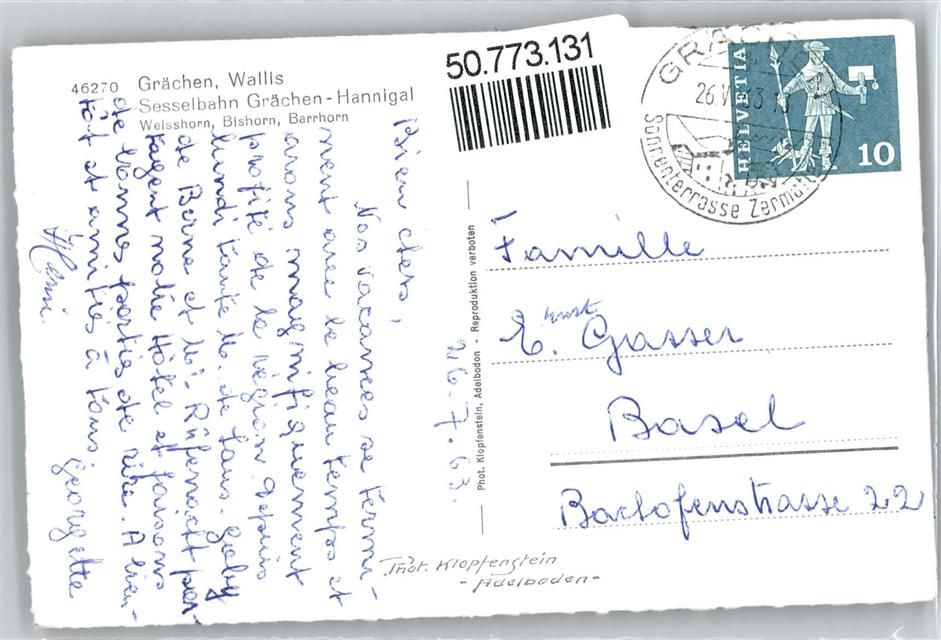 46270 Grächen, Wallis
Sesselbahn Grächen-Hannigal
Weisshorn, Bishorn, Barrhorn
50.773.131
GRÄCHEN
26.V
Sonnenterrasse Zermatt
HELVETIA
10
26.7.63.
Bien chers,
Nos vacances se termi-
nent avec le beau temps et
avons magnifiquement
profité de la région depuis
lundi tante M. de Laus. Gaby
de Berne et Mr Rüfenacht par-
tagent notre Hôtel et faisons
de bonnes parties de rire. A bien-
tôt et amitiés à tous. Georgette
Henri.
Phot. Klopfenstein, Adelboden - Reproduktion verboten
Famille
E. Gasser
Ernst
Basel
Bachofenstrasse 22
Phot. Klopfenstein
- Adelboden -